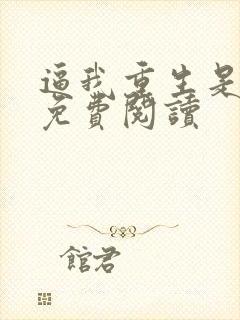 逼我重生是
免費閱讀
館君